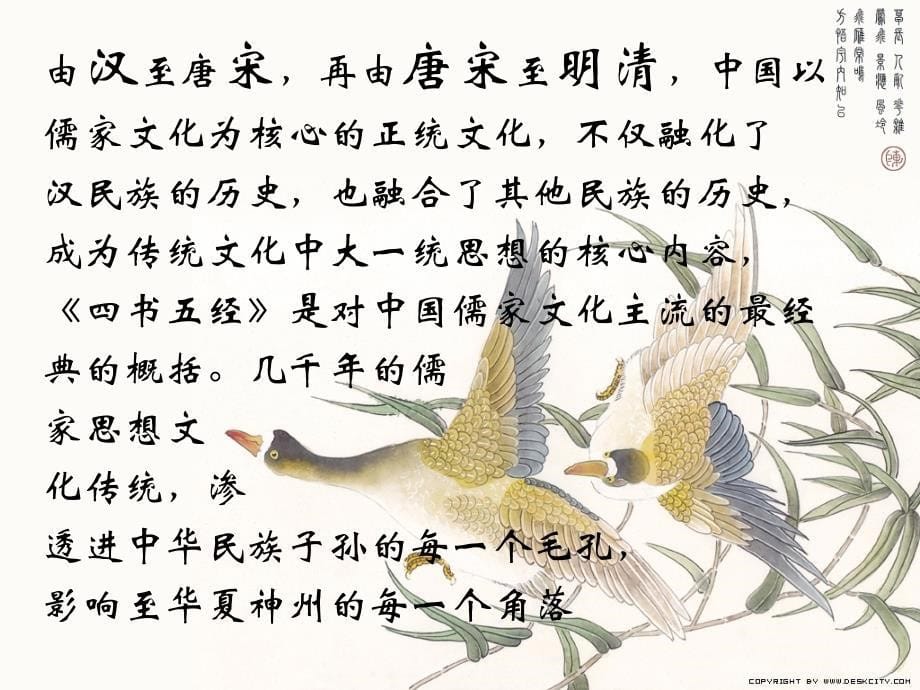 由汉至唐宋，再由唐宋至明清，中国以
儒家文化为核心的正统文化，不仅融化了
汉民族的历史，也融合了其他民族的历史，
成为传统文化中大一统思想的核心内容，
《四书五经》是对中国儒家文化主流的最经
典的概括。几千年的儒
家思想文
化传统，渗
透进中华民族子孙的每一个毛孔，
影响至华夏神州的每一个角落
COPYRIGHT BY WWW.DESKCITY.COM